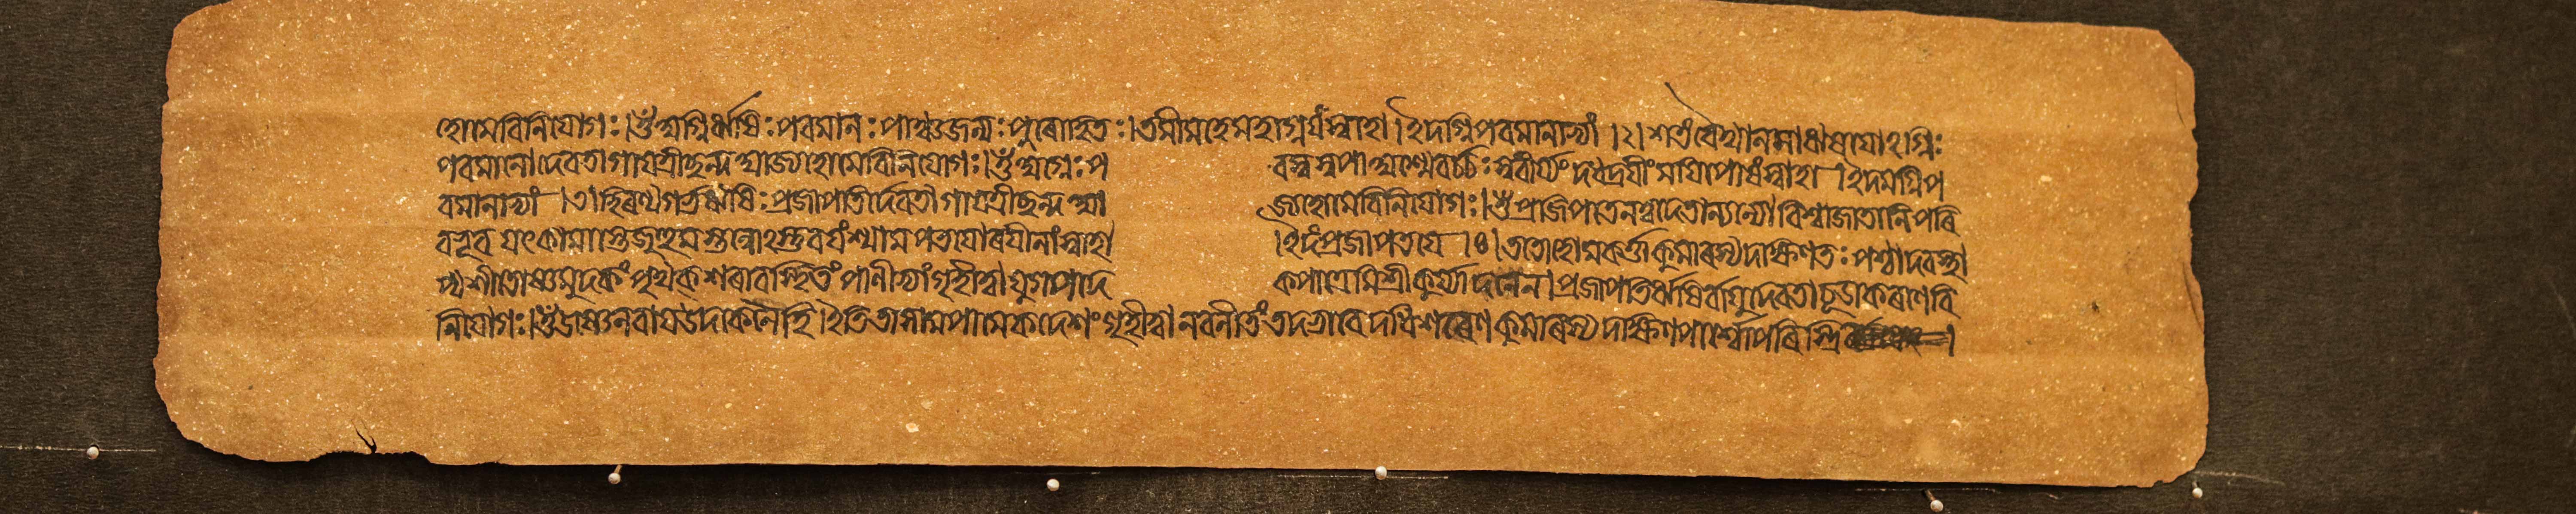 হোমেবিনিযোগঃ।ওঁঅগ্নিৰ্ঋষিঃপবমানঃপাঞ্চজন্যঃপুৰোহিতঃ।তমীমহেমহাগযংস্বাহা।ইদমগ্নিপবমানাভ্যাং।২।শতংবৈখানসাঋষযোঽগ্নিঃ
পবমানোদেবতাগাযত্ৰীছন্দআজ্যহোমেবিনিযোগঃ।ওঁঅগ্নেঃপ বস্বস্বপাঅস্মেবৰ্চঃসুবীৰ্য্যংদধদ্ৰযিংমযিপোষংস্বাহা।ইদমগ্নিপ
বমানাভ্যাং।৩।হিৰণ্যগৰ্ভঋষিঃপ্ৰজাপতিৰ্দেবতাগাযত্ৰীছন্দআ জ্যহোমেবিনিযোগঃ।ওঁপ্ৰজাপতেনত্বাদেতান্যন্যোবিশ্বাজাতানিপৰি
বভূবযৎকামাস্তেজুহুমস্তন্নোঽস্তুবযংশ্যামপতযোৰযীনাংস্বাহা ।ইদংপ্ৰজাপতযে।৪।ততোহোমকৰ্ত্তাকুমাৰস্যদক্ষিণতঃপশ্চাদবস্থা
প্যশীতোষ্ণমুদকংপৃথক্শৰাবস্থিতংপাণীভ্যাংগৃহীত্বাযুগপদে কপাত্ৰেমিশ্ৰীকুৰ্য্যাদনেন।প্ৰজাপতিৰ্ঋষিৰ্বাযুৰ্দেবতাচূডাকৰণেবি
নিযোগঃ।ওঁউষ্ণেনবাযউদকেনৈহি।ইতিতাসামপামেকদেশংগৃহীত্বানবনীতংতদভাবেদধিশৰেণকুমাৰস্যদক্ষিণপাৰ্শ্বোপৰি